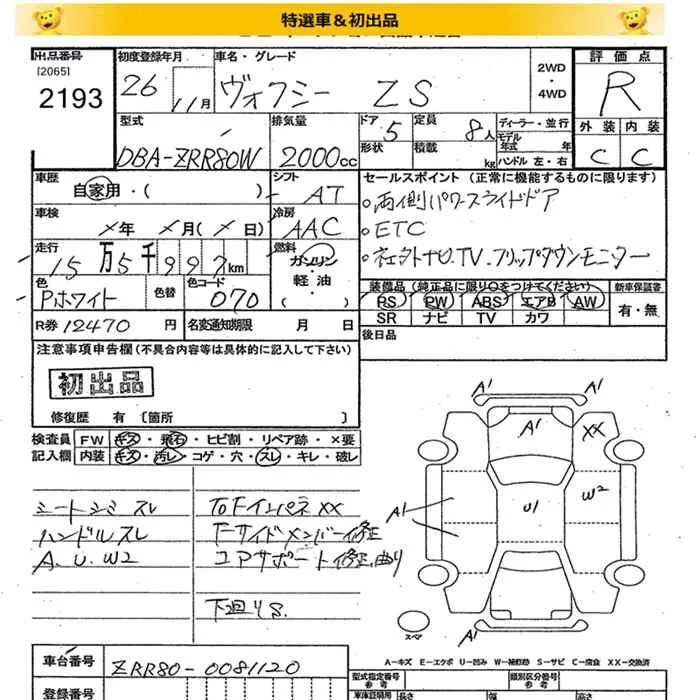 特選車＆初出品
出品番号 初度登録年月 車名・グレード 評価点
[2065]
2193 26 11月 ヴォクシー ZS 2WD・4WD R
型式 排気量 ドア 5 定員 8人 ディーラー・並行 外装 内装
DBA-ZRR80W 2000cc 形状 積載 kg モデル年式 年 ハンドル 左・右 C C
車歴 自家用・( ) シフト AT セールスポイント (正常に機能するものに限ります)
。両側パワースライドドア
車検 ×年 ×月(×日) 冷房 AAC 。ETC
走行 15万5千997km 燃料 ガソリン・軽油 。社外ナビ.TV.フリップダウンモニター
色 Pホワイト 色替 色コード 070 装備品 (純正品に限り○をつけてください) 新車保証書
PS PW ABS エアB AW 有・無
R券 12470円 名変通知期限 月 日 SR ナビ TV カワ
後日品
注意事項申告欄 (不具合内容等は具体的に記入して下さい)
初出品
修復歴 有 〔箇所 〕
検査員 FW キズ・飛石・ヒビ割・リペア跡・×要
記入欄 内装 キズ・汚レ・コゲ・穴・スレ・キレ・破レ
シートシミ スレ
ハンドルスレ
A. U. W2
インパネ XX
F-サイドメンバー修正
コアサポート修正.曲り
下廻りS.
A1 A1
A1 XX
A1 U1 W2
A1
スペア
A-キズ E-エクボ U-凹み W-補修跡 S-サビ C-腐食 XX-交換済
車台番号 ZRR80-0081120 型式指定番号 参考 類別区分番号 参考
登録番号 車庫証明用 参考 長さ 幅 高さ